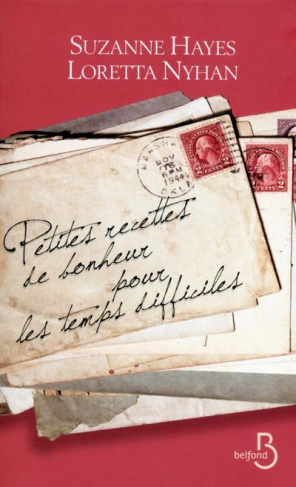 SUZANNE HAYES
LORETTA NYHAN
Petites recettes
de bonheur
pour
les temps difficiles
NOV
1944
OKLA
belfond